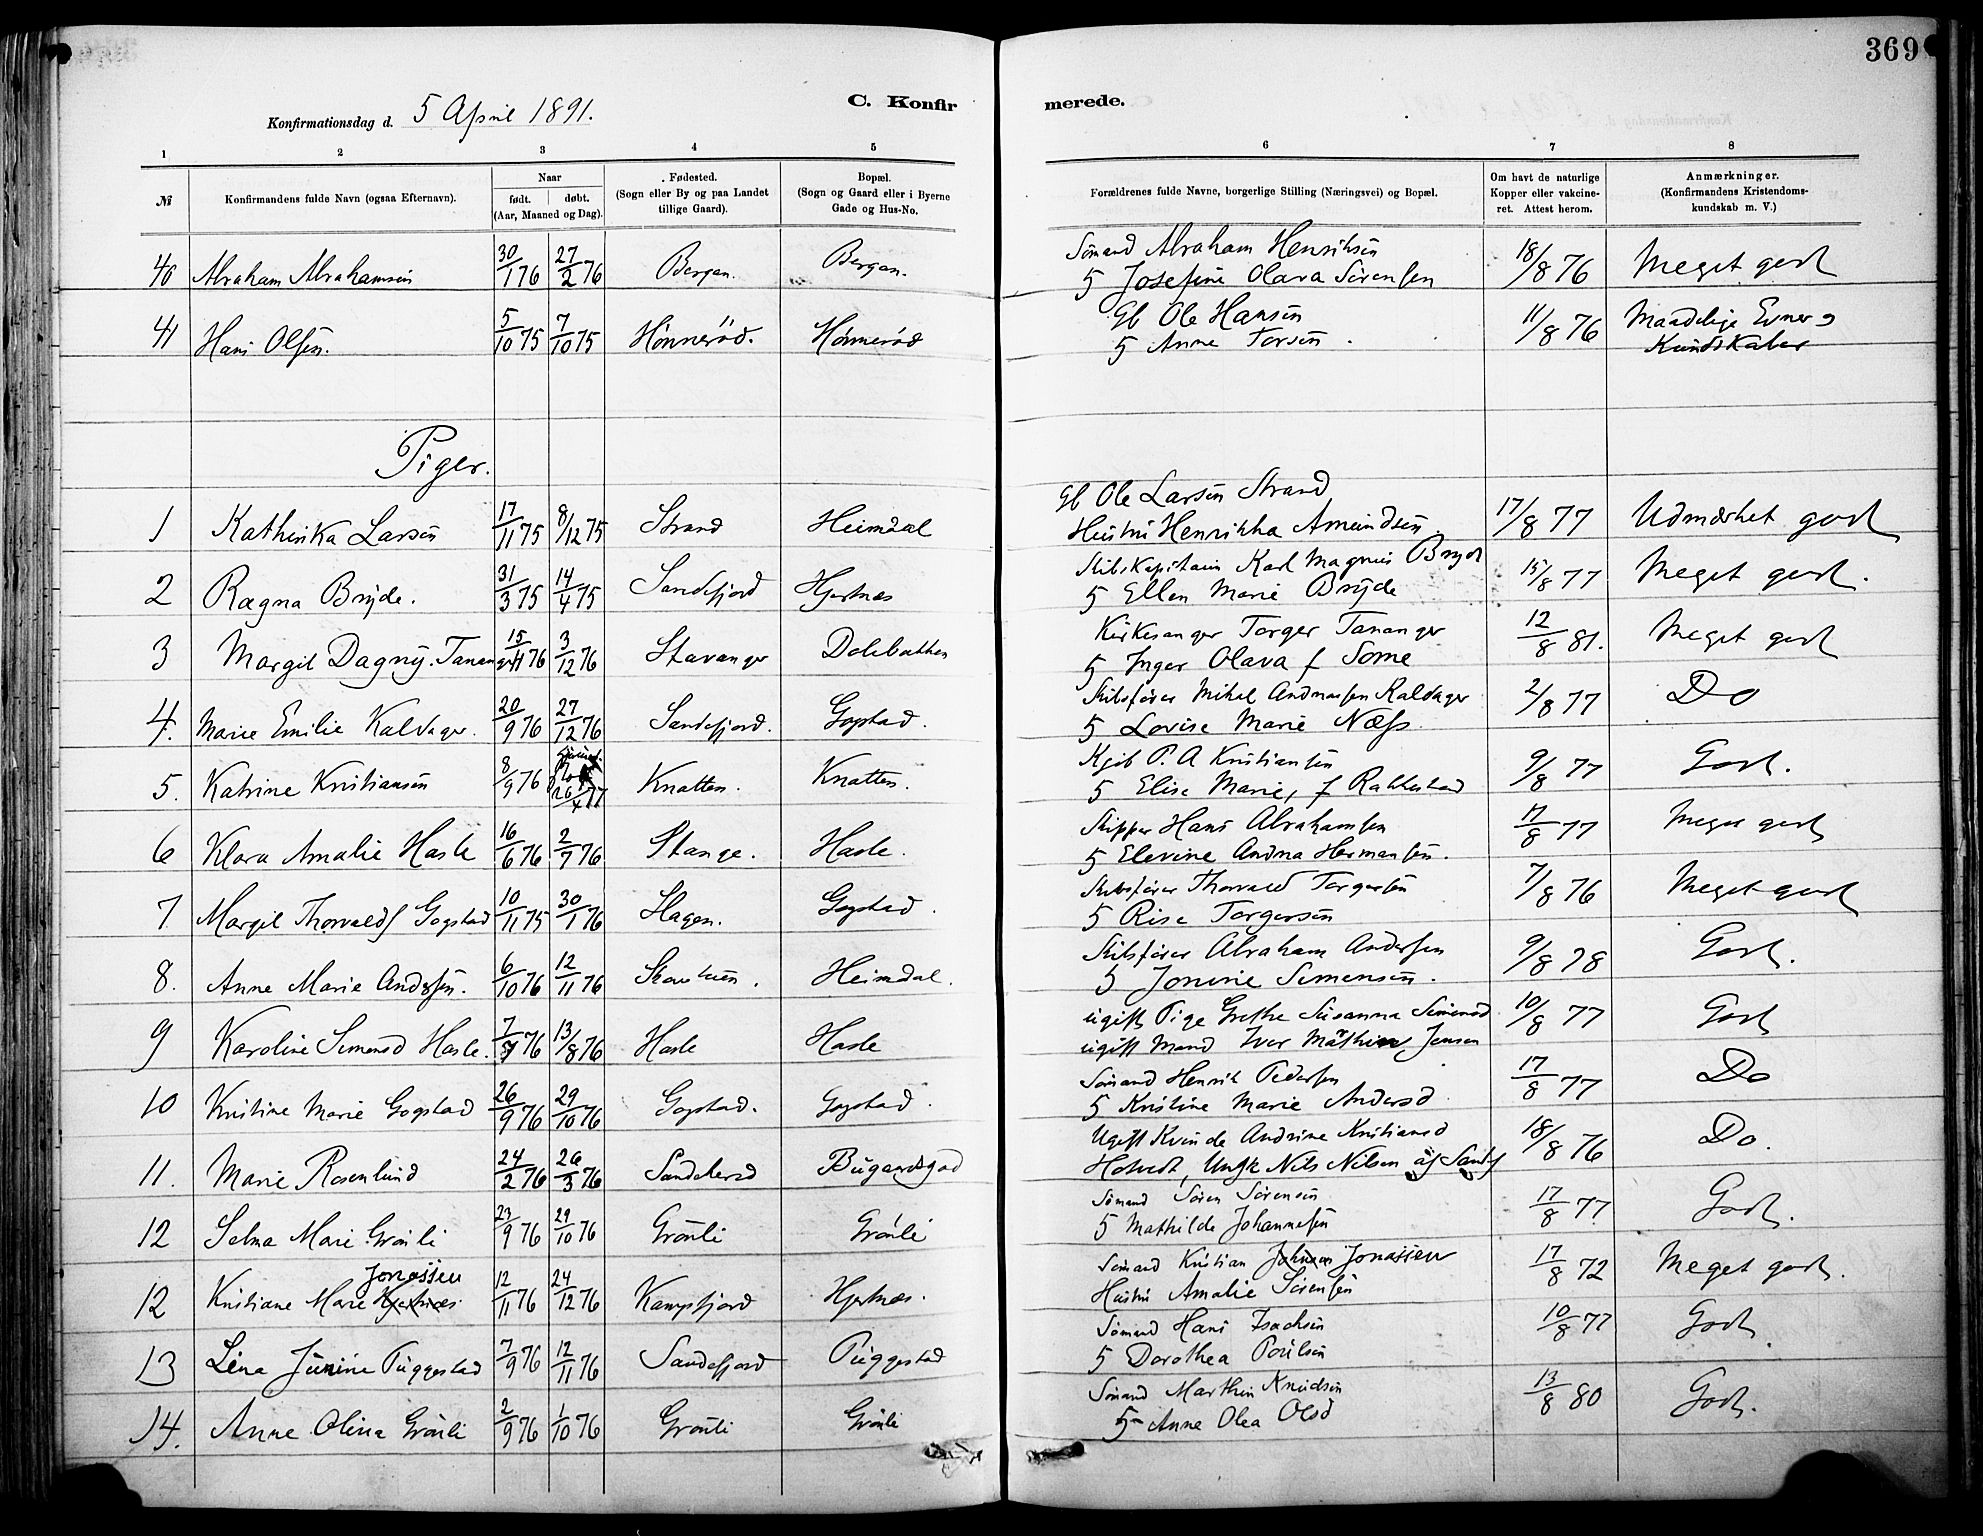 369
C. Konfirmerede.
Konfirmationsdag d. 5 April 1891.
1 2 3 4 5 6 7 8
№ Konfirmandens fulde Navn (ogsaa Efternavn). Naar født. døbt. (Aar, Maaned og Dag). Fødested. (Sogn eller By og paa Landet tillige Gaard). Bopæl. (Sogn og Gaard eller i Byerne Gade og Hus-No. Forældrenes fulde Navne, borgerlige Stilling (Næringsvei) og Bopæl. Om havt de naturlige Kopper eller vakcineret. Attest herom. Anmærkninger. (Konfirmandens Kristendomskundskab m. V.)
40 Abraham Abrahamsen 30/1 76 27/2 76 Bergan. Bergan. Sömand Abraham Henriksen 18/8 76 Meget godt
5 Josefine Olava Sörensen
41 Hans Olsen. 5/10 75 7/10 75 Hönneröd. Hönneröd Gb Ole Hansen 11/8 76 Maadelige Evner og
5 Anne Torsen . Kundskaber
Piger.
1 Kathinka Larsen 17/11 75 8/12 75 Strand Heimdal Gb Ole Larsen Strand 17/8 77 Udmærket godt
Hustru Henrikka Amundsen.
2 Ragna Bryde. 31/3 75 14/4 75 Sandefjord Hjertnes Skibskapitain Karl Magnus Bryde 15/8 77 Meget godt.
5 Ellen Marie Bryde
3 Margit Dagny Tananger 15/11 76 3/12 76 Stavanger Dolebakken Kirkesanger Torger Tananger 12/8 81. Meget godt
5 Inger Olava f Some
4. Marie Emilie Kaldager. 20/9 76 27/12 76 Sandefjord. Gogstad. Skibsförer Mikal Andreassen Kaldager 2/8 77 Do
5 Lovise Marie Næss.
5. Katrine Kristiansen 8/9 76 26/4 77 Knatten. Knatten. Kjöb P. A Kristiansen 9/8 77 Godt.
5 Elise Marie, f Rakkestad
6 Klara Amalie Hasle 16/6 76 2/7 76 Stange. Hasle. Skipper Hans Abrahamsen 17/8 77 Meget godt
5 Elevine Andrea Hermansen.
7 Margit Thorvalds Gogstad 10/11 75 30/1 76 Hagen. Gogstad. Skibsförer Thorvald Torgersen 7/8 76 Meget godt
5 Rise Torgersen
8. Anne Marie Andersen. 6/10 76 12/11 76 Heimdal. Skibsförer Abraham Andersen 9/8 78 Godt.
5 Jonine Simensen.
9 Karoline Simensd Hasle. 7/ 76 13/8 76 Hasle Hasle ugift Pige Grethe Susanna Simensd 10/8 77 Godt
ugift Mand Iver Mathias Jensen
10 Kristine Marie Gogstad 26/9 76 29/10 76 Gogstad. Gogstad. Sömand Henrik Pedersen 17/8 77 Do
5 Kristine Marie Andersd
11. Marie Rosenlund 24/2 76 26/3 76 Sandeherred Bugaardsgad Ugift Kvinde Andrine Kristiansd 18/8 76 Do.
Hotvedt, Ungk Nils Nilsen af Sandf
12 Selma Marie Grönli 23/9 76 29/10 76 Grönli Grönli Sömand Sören Sörensen 17/8 77 Godt.
5 Mathilde Johannesen
12 Kristiane Marie Hjertnes Jonassen 12/11 76 24/12 76 Kampfjord Hjertnes. Sömand Kristian Johnsen Jonassen 17/8 72 Meget godt.
Hustru Amalie Sörensen
13 Lina Junine Puggestad 7/9 76 12/11 76 Sandefjord Puggestad Sömand Hans Isachsen 10/8 77 Godt
5 Dorothea Poulsen
14. Anne Olina Grönli 2/9 76 1/10 76 Grönli Grönli Sömand Marthin Knudsen 13/8 80 Godt.
5 Anne Olea Olsd